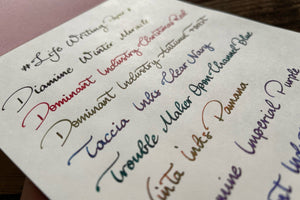 #Life Writing Paper
Diamine Winter Miracle
Dominant Industry Christmas Red
Dominant Industry Autumn
Taccia Inks Clear Navy
Trouble Maker Open Channel Blue
Vinta Inks Panana
Diamine Imperial Purple